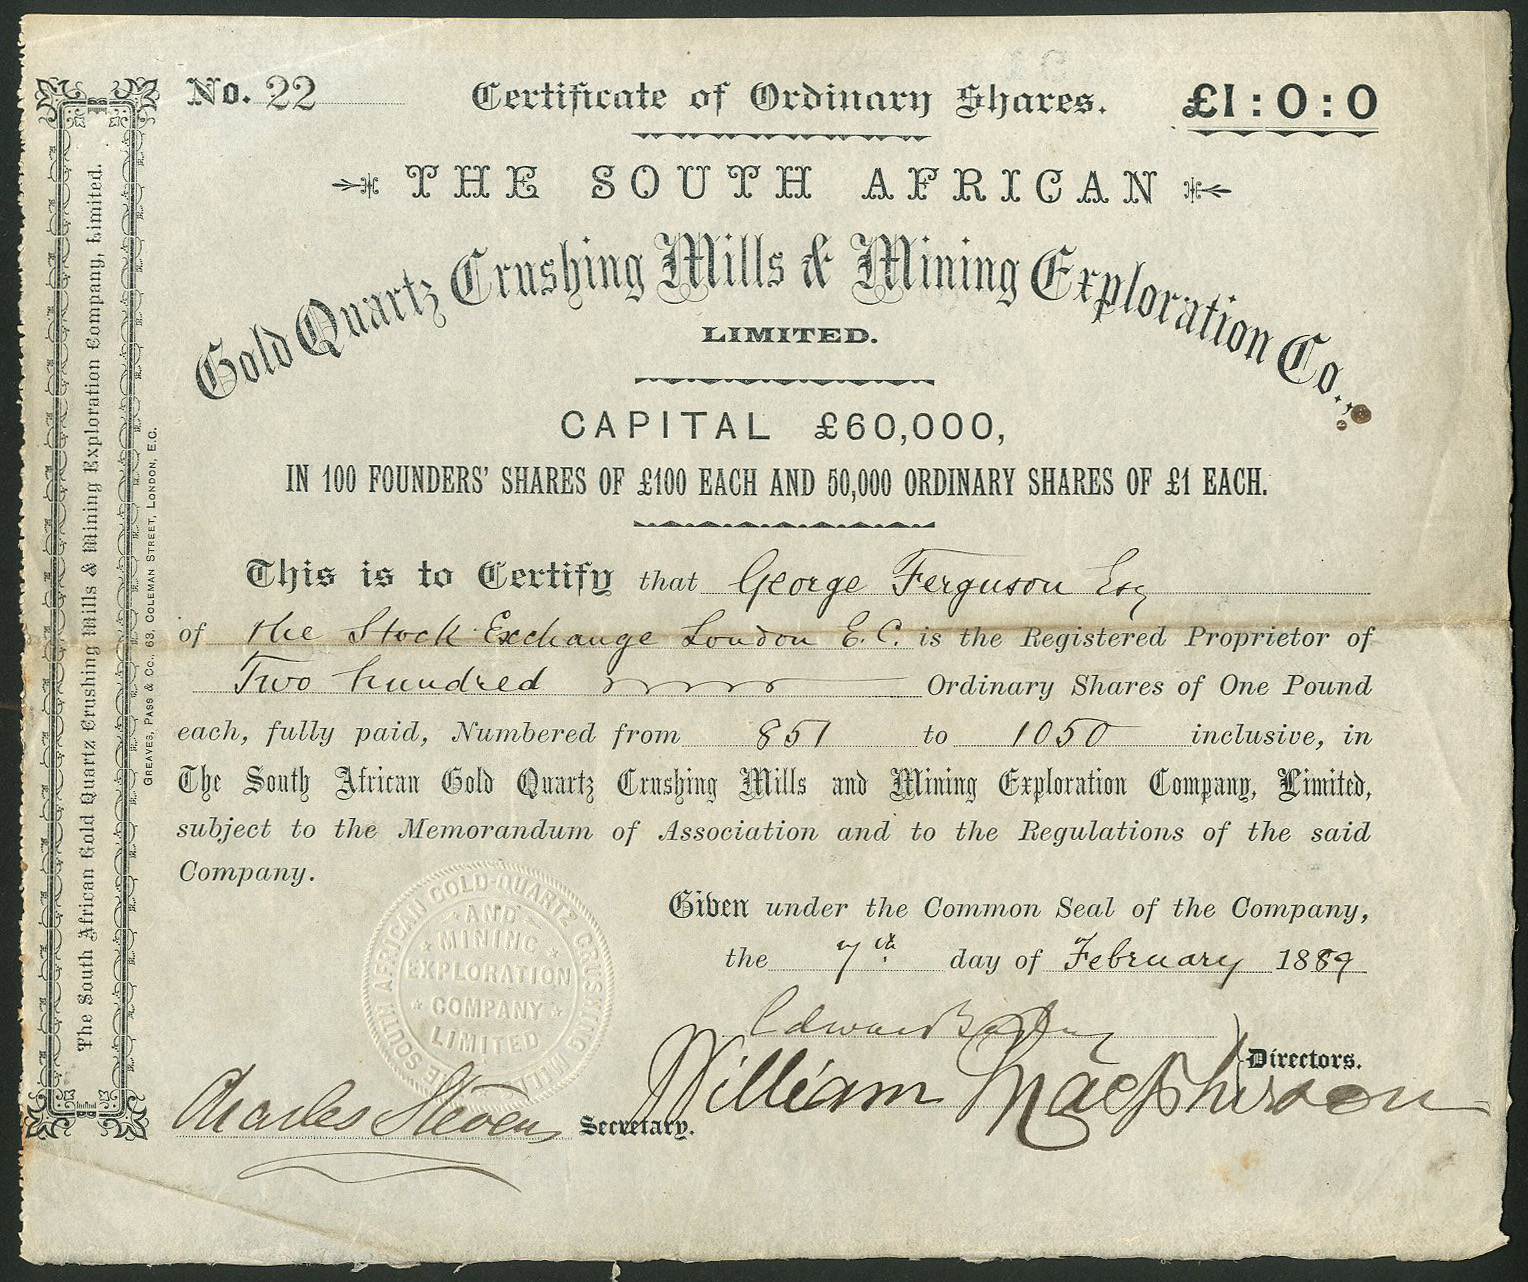 No. 22 Certificate of Ordinary Shares. £1:0:0
THE SOUTH AFRICAN
Gold Quartz Crushing Mills & Mining Exploration Co.,
LIMITED.
CAPITAL £60,000,
IN 100 FOUNDERS' SHARES OF £100 EACH AND 50,000 ORDINARY SHARES OF £1 EACH.
This is to Certify that George Ferguson Esq
of the Stock Exchange London E.C. is the Registered Proprietor of
Two hundred Ordinary Shares of One Pound
each, fully paid, Numbered from 851 to 1050 inclusive, in
The South African Gold Quartz Crushing Mills and Mining Exploration Company, Limited,
subject to the Memorandum of Association and to the Regulations of the said
Company.
Given under the Common Seal of the Company,
the 7th day of February 1889
Edward
William Macpherson
Directors.
Charles Stevens Secretary.
THE SOUTH AFRICAN GOLD-QUARTZ CRUSHING MILLS
AND
MINING
EXPLORATION
COMPANY
LIMITED
The South African Gold Quartz Crushing Mills & Mining Exploration Company, Limited.
GREAVES, PASS & CO., 63, COLEMAN STREET, LONDON, E.C.